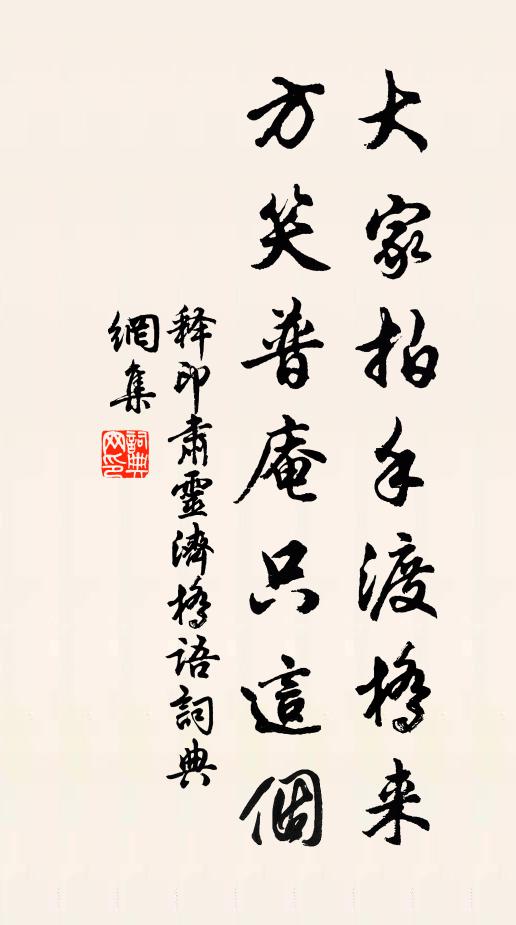 大家拍手渡橋来
方笑普庵只這個
释印肅靈濟橋語詞典
網集
詞典
网印